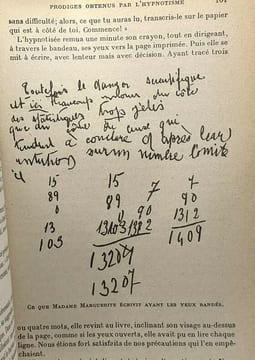 PRODIGES OBTENUS PAR L'HYPNOTISME 101
sans difficulté; alors, ce que tu auras lu, transcris-le sur le papier
qui est à côté de toi. Commence! »
L'hypnotisée remua une minute son crayon, tout en dirigeant,
à travers le bandeau, ses yeux vers la page imprimée. Puis elle se
mit à écrire, avec lenteur mais avec décision. Ayant tracé trois
Toutefois le danger scientifique
et ici beaucoup moins du côté
des statistiques trop zélés
que du côté de ceux qui
tendent à conclure d'après leur
intuition sur un nombre limité
15 15 7 7
89 89 90
0 0 90 1312
13 1303 1312 1409
103 13204
13207
CE QUE MADAME MARGUERITE ÉCRIVIT AYANT LES YEUX BANDÉS.
ou quatre mots, elle revint au livre, inclinant son visage au-dessus
de la page, comme si les yeux ouverts, elle avait pu en lire chaque
ligne. Nous étions fort satisfaits de nos précautions qui l'en empê-
chaient.